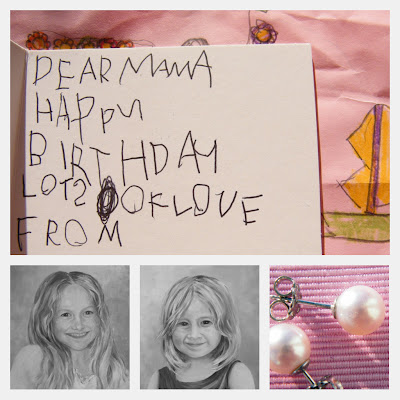 DEAR MAMA
HAPPY
BIRTHDAY
LOTS OK LOVE
FROM